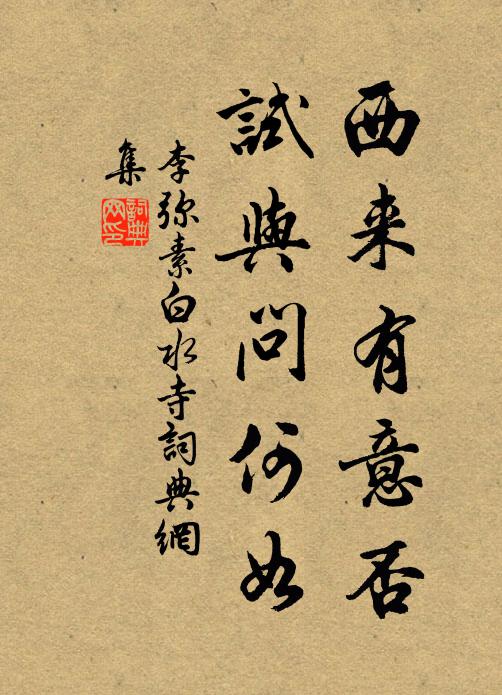 西来有意否
試與問何如
李弥素白水寺詞典網
集
詞典
网印